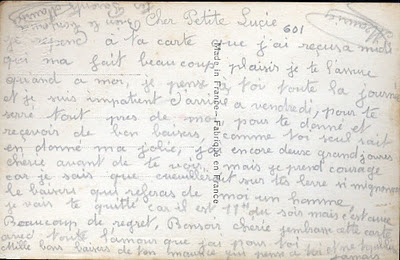 Cher Petite Lucie
601
je répond à la carte que j'ai reçu a midi
qui ma fait beaucoup plaisir je te l'assure
quand a moi, je pense à toi toute la journée
et je suis impatient d'arrivé a vendredi, pour te
serré tout près de moi, pour te donné et
recevoir de bon baisers, comme toi seul sait
en donné ma jolie, j'ai encore deux grand jours
cherie avant de te voir, mais je prend courage
car je sais que cueuiller et sur tes levre si mignonne
le baiser qui referas de moi un homme,
je vais te quitté car il est 11H du soir mais c'est avec
Beaucoup de regret, Bonsoir cherie j'embrasse cette carte
avec toute l'amour que j'ai pour toi
Mille bons baisers de ton maurice qui pense a toi et ne
jamais
Made in France - Fabriqué en France